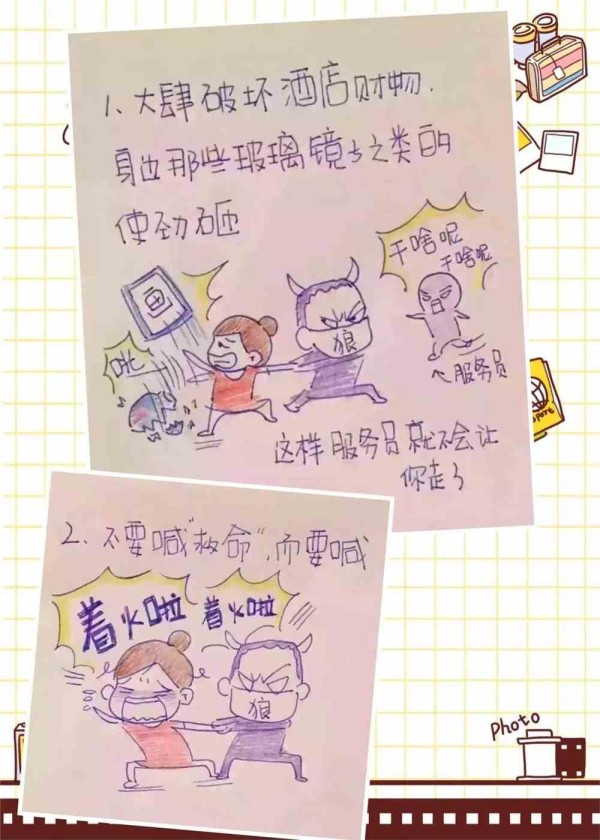 1、大肆破坏酒店财物.
身边那些玻璃镜与之类的
使劲砸
画
咣
狼
干啥呢
干啥呢
服务员
这样服务员就不会让
你走了
2、不要喊"救命",而要喊
着火啦
着火啦
狼
Photo